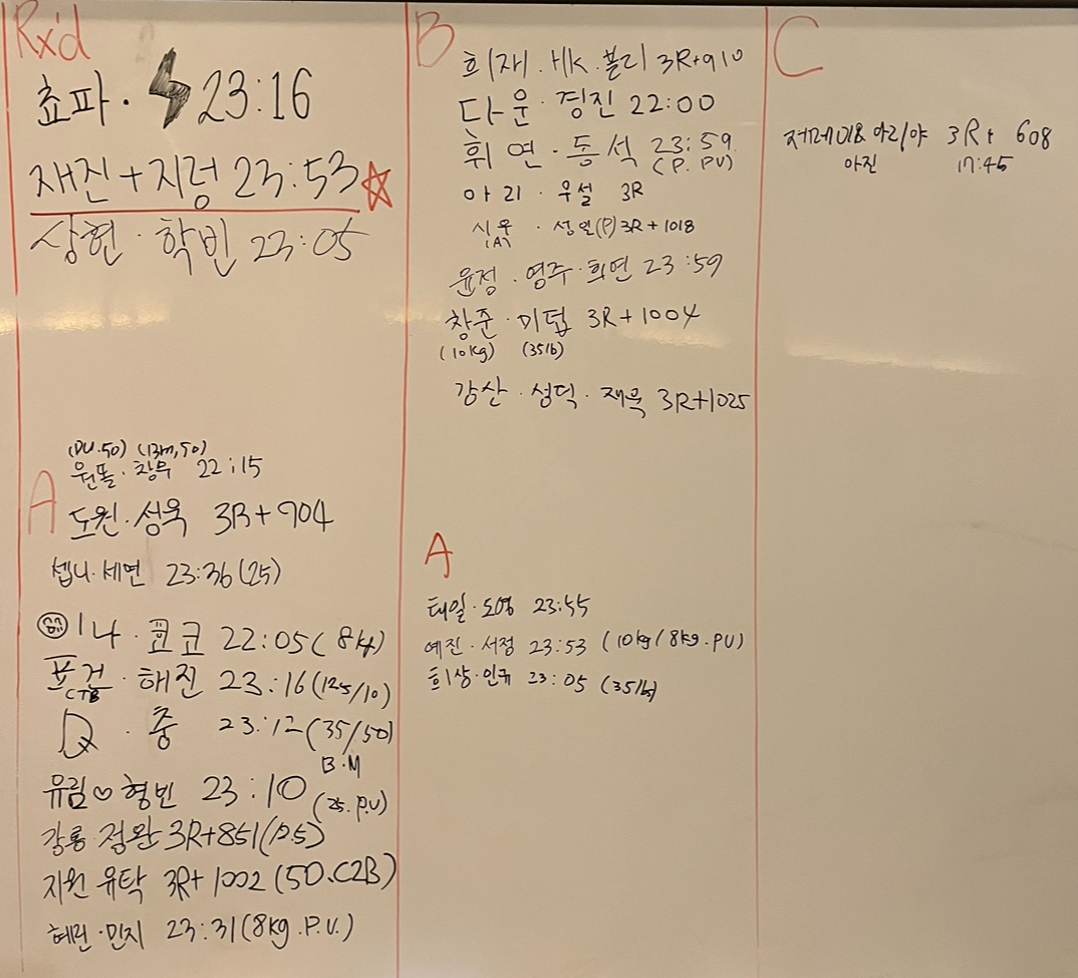 Rx'd
쵸파 · 23:16
재진 + 지렁 23:53
상현 · 학빈 23:05
A
(DU.50) (13m,50)
원폴 · 창무 22:15
도원 · 성욱 3R+904
셉니 · 세연 23:36 (25)
나 · 코코 22:05 (8kg)
표건 · 해진 23:16 (12.5/10)
CTB
Q · 중 23:12 (35/50)
B.M
유림♡형빈 23:10 (25. P.U)
강룡 정완 3R+851 (12.5)
지원 유탁 3R+1002 (50.C2B)
혜린 · 민지 23:31 (8kg.P.U.)
B
희재 · HK · 볼리 3R+910
다운 · 경진 22:00
휘연 · 동석 23:59
(P. PU)
아리 · 우설 3R
시우 · 성일(P) 3R+1018
(A)
윤정 · 영주 · 희연 23:59
창준 · 미덥 3R+1004
(10kg) (35lb)
강산 · 성덕 · 재욱 3R+1025
A
태일 · 도영 23:55
예진 · 서정 23:53 (10kg/8kg.PU)
희상 · 인규 23:05 (35lb)
C
저메미& 아리야 3R+ 608
아진 17:45